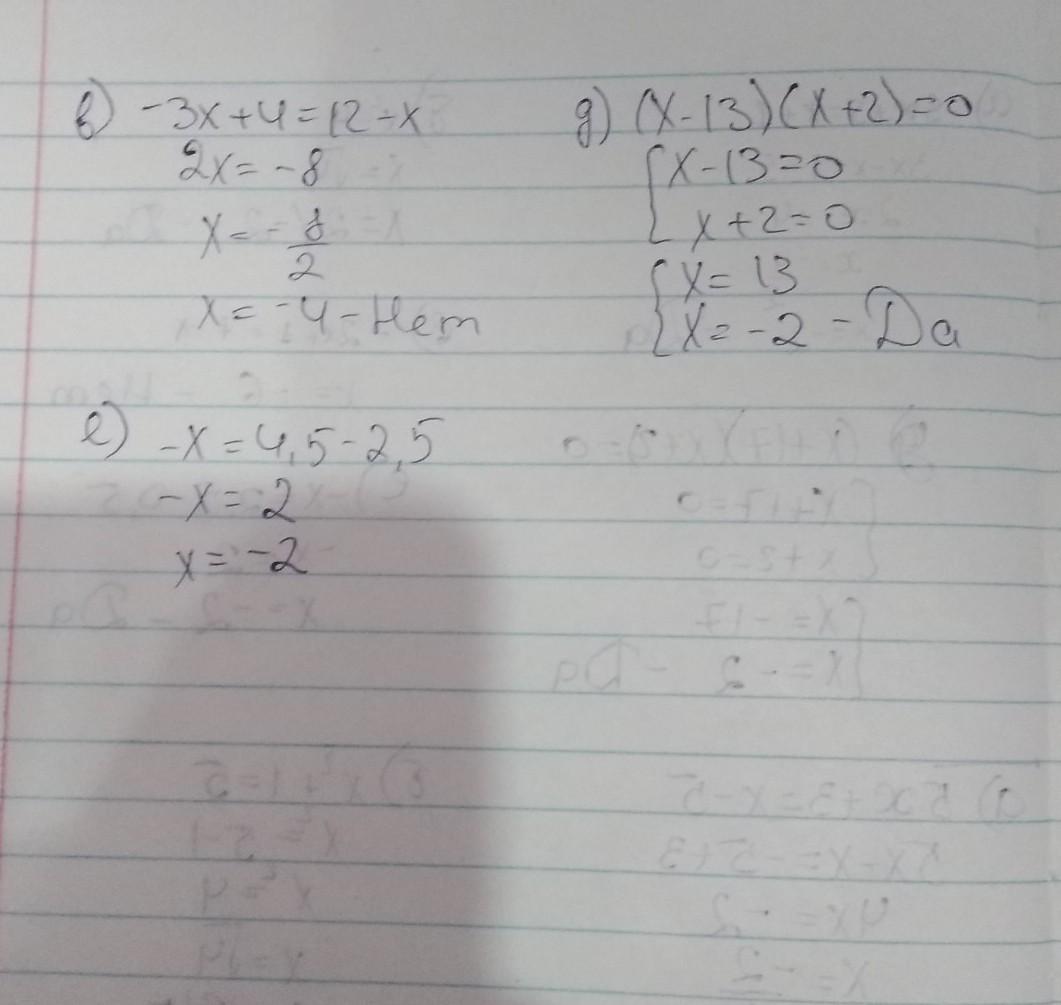 в) -3x+4=12-x
2x=-8
x=-8/2
x=-4-Нет
д) (x-13)(x+2)=0
{x-13=0
x+2=0
{x=13
x=-2 - Да
е) -x=4,5-2,5
-x=2
x=-2